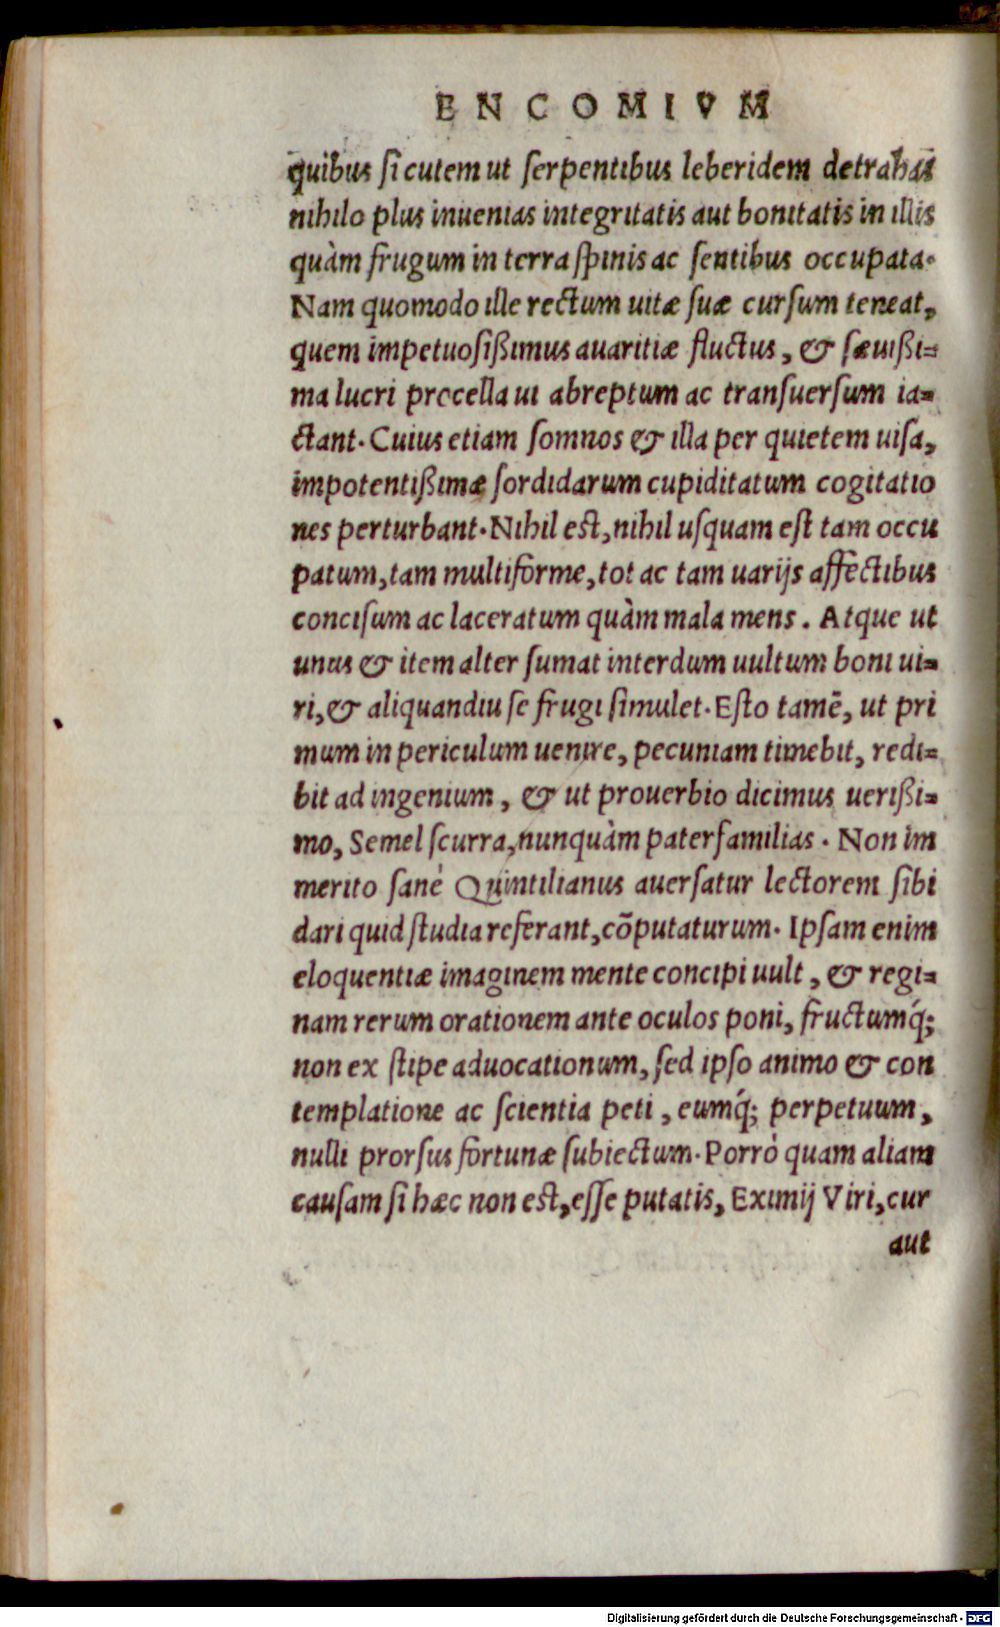 ENCOMIVM
quibus si cutem ut serpentibus leberidem detrahas
nihilo plus inuenias integritatis aut bonitatis in illis
quàm frugum in terra spinis ac sentibus occupata.
Nam quomodo ille rectum uitæ suæ cursum teneat,
quem impetuosißimus auaritiæ fluctus, & sæuißi=
ma lucri procella ui abreptum ac transuersum ia=
ctant. Cuius etiam somnos & illa per quietem uisa,
impotentißimæ sordidarum cupiditatum cogitatio
nes perturbant. Nihil est, nihil usquam est tam occu
patum, tam multiforme, tot ac tam uarijs affectibus
concisum ac laceratum quàm mala mens. Atque ut
unus & item alter sumat interdum uultum boni ui=
ri, & aliquandiu se frugi simulet. Esto tamē, ut pri
mum in periculum uenire, pecuniam timebit, redi=
bit ad ingenium, & ut prouerbio dicimus uerißi=
mo, Semel scurra, nunquàm paterfamilias. Non im
merito sanè Quintilianus auersatur lectorem sibi
dari quid studia referant, cõputaturum. Ipsam enim
eloquentiæ imaginem mente concipi uult, & regi=
nam rerum orationem ante oculos poni, fructumq́;
non ex stipe aduocationum, sed ipso animo & con
templatione ac scientia peti, eumq́; perpetuum,
nulli prorsus fortunæ subiectum. Porrò quam aliam
causam si hæc non est, esse putatis, Eximij Viri, cur
aut
Digitalisierung gefördert durch die Deutsche Forschungsgemeinschaft - DFG